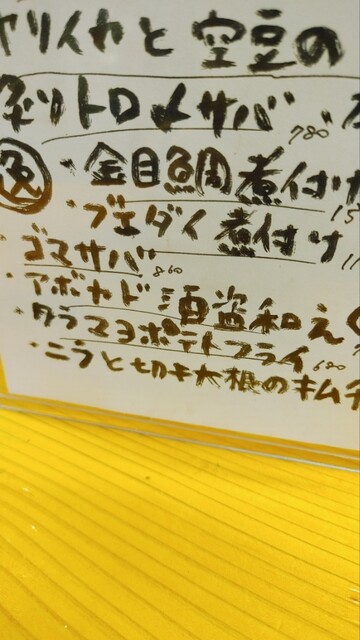 ヤリイカと空豆の
炙りトロ〆サバ 780
・金目鯛煮付け
・フエダイ煮付け
・ゴマサバ 860
・アボカド酒盗和え
・タラマヨポテトフライ 680
・ニラと切干大根のキムチ